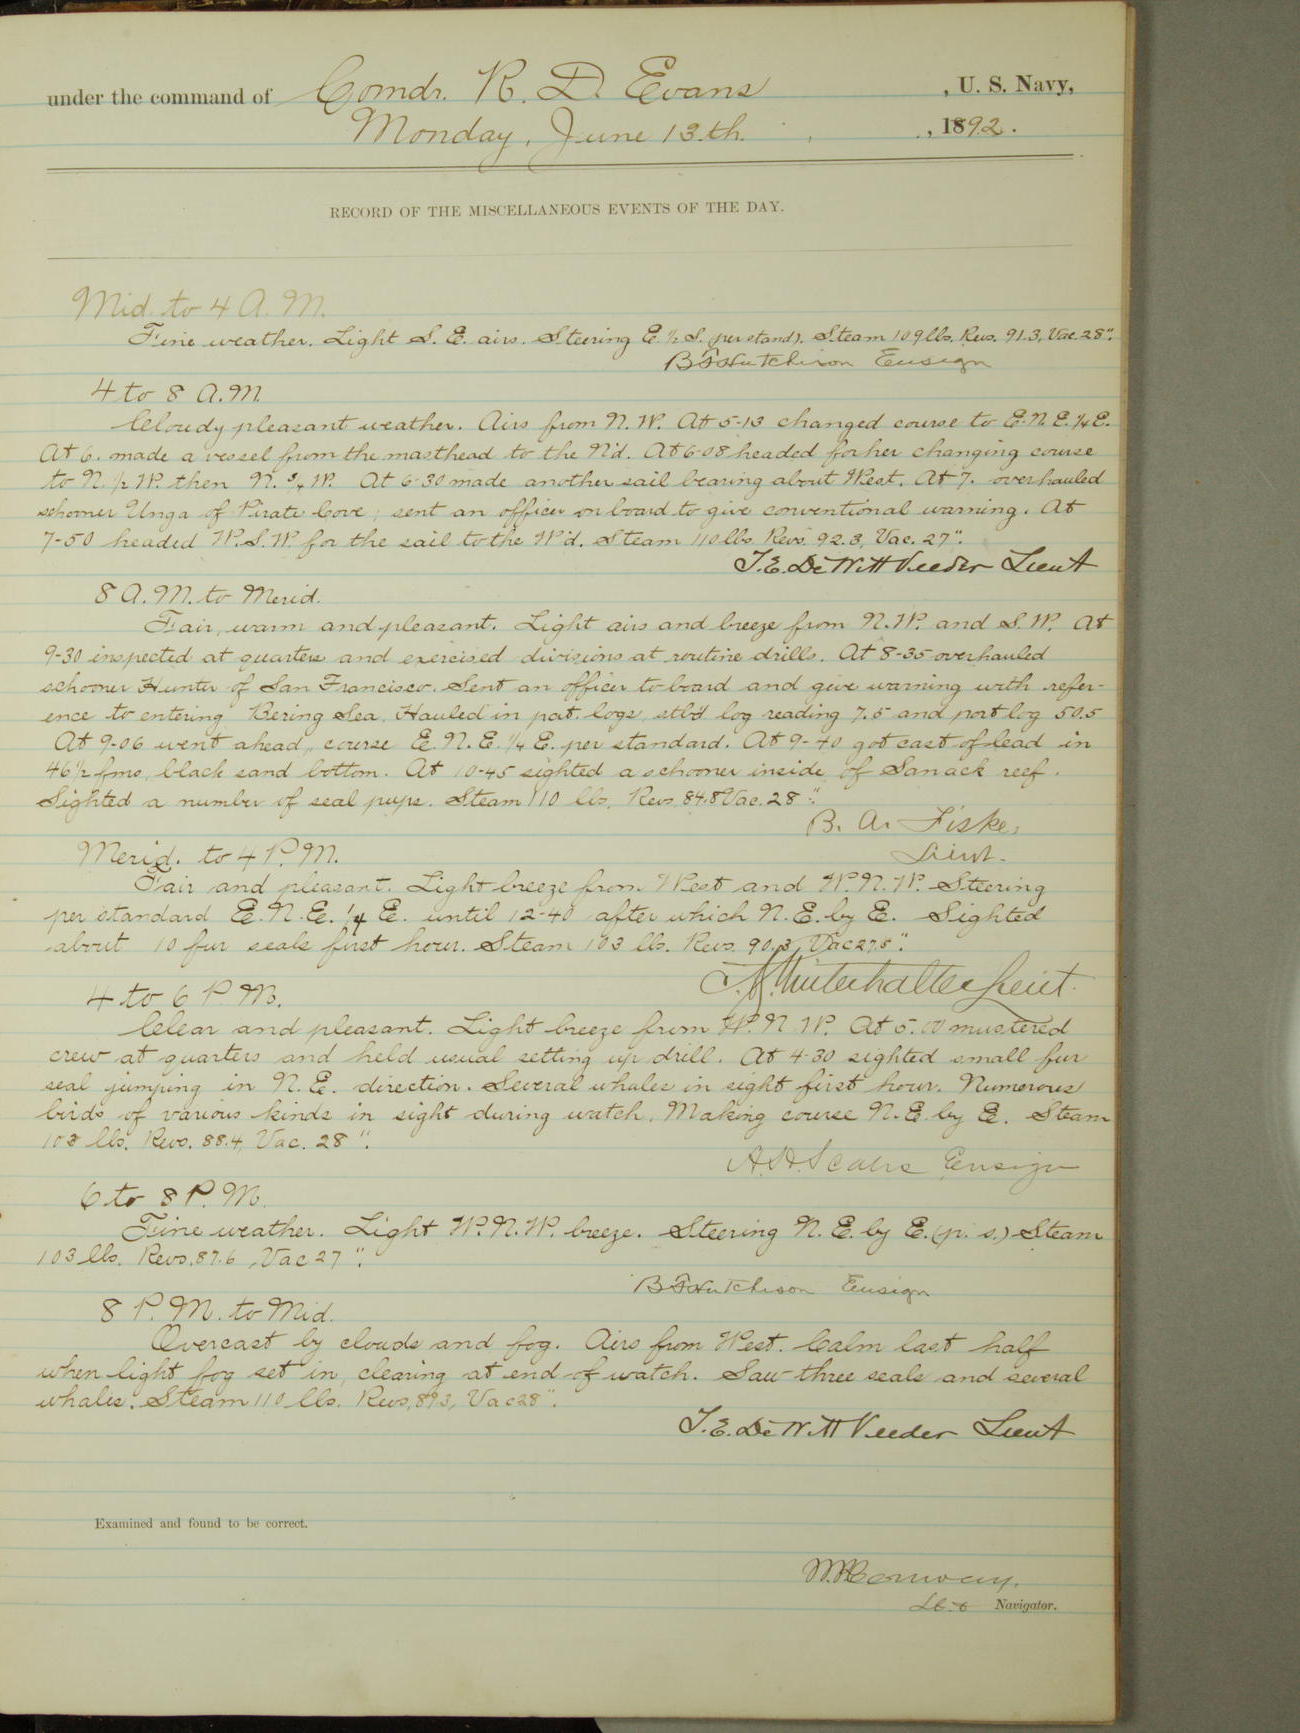 under the command of Comdr. R. D. Evans, U. S. Navy,
Monday, June 13.th. , 1892.
RECORD OF THE MISCELLANEOUS EVENTS OF THE DAY.
Mid. to 4 A. M.
Fine weather. Light S. E. airs. Steering E. 1/2 S. (per stand). Steam 109 lbs. Revs. 91.3, Vac. 28".
B F Hutchison Ensign
4 to 8 A. M.
Cloudy pleasant weather. Airs from N. W. At 5-13 changed course to E. N. E. 1/4 E.
At 6. made a vessel from the masthead to the N'd. At 6-08 headed for her changing course
to N. 1/2 W. then N. 3/4 W. At 6-30 made another sail bearing about West. At 7. overhauled
schooner Unga of Pirate Cove; sent an officer on board to give conventional warning. At
7-50 headed W. S. W. for the sail to the W'd. Steam 110 lbs. Revs. 92.3, Vac. 27".
T. E. DeWitt Veeder Lieut
8 A. M. to Merid.
Fair, warm and pleasant. Light airs and breeze from N. W. and S. W. At
9-30 inspected at quarters and exercised divisions at routine drills. At 8-35 overhauled
schooner Hunter of San Francisco. Sent an officer to board and give warning with refer-
ence to entering Bering Sea. Hauled in pat. logs, stb'd log reading 7.5 and port log 50.5
At 9-06 went ahead, course E. N. E. 1/4 E. per standard. At 9-40 got cast of lead in
46 1/2 fms, black sand bottom. At 10-45 sighted a schooner inside of Sanack reef.
Sighted a number of seal pups. Steam 110 lbs. Revs. 84.8 Vac. 28".
B. A. Fiske,
Lieut.
Merid. to 4 P. M.
Fair and pleasant. Light breeze from West and W. N. W. Steering
per standard E. N. E. 1/4 E. until 12-40 after which N. E. by E. Sighted
about 10 fur seals first hour. Steam 103 lbs. Revs. 90.3, Vac 27.5".
Winterhalter Lieut.
4 to 6 P. M.
Clear and pleasant. Light breeze from W. N. W. At 5.00 mustered
crew at quarters and held usual setting up drill. At 4-30 sighted small fur
seal jumping in N. E. direction. Several whales in sight first hour. Numerous
birds of various kinds in sight during watch. Making course N. E. by E. Steam
103 lbs. Revs. 88.4, Vac. 28".
A. H. Scales Ensign
6 to 8 P. M.
Fine weather. Light W. N. W. breeze. Steering N. E. by E. (p. s.) Steam
103 lbs. Revs. 87.6, Vac 27".
B F Hutchison Ensign
8 P. M. to Mid.
Overcast by clouds and fog. Airs from West. Calm last half
when light fog set in, clearing at end of watch. Saw three seals and several
whales. Steam 110 lbs. Revs, 89.3, Vac 28".
T. E. DeWitt Veeder Lieut
Examined and found to be correct.
Conway.
Navigator.